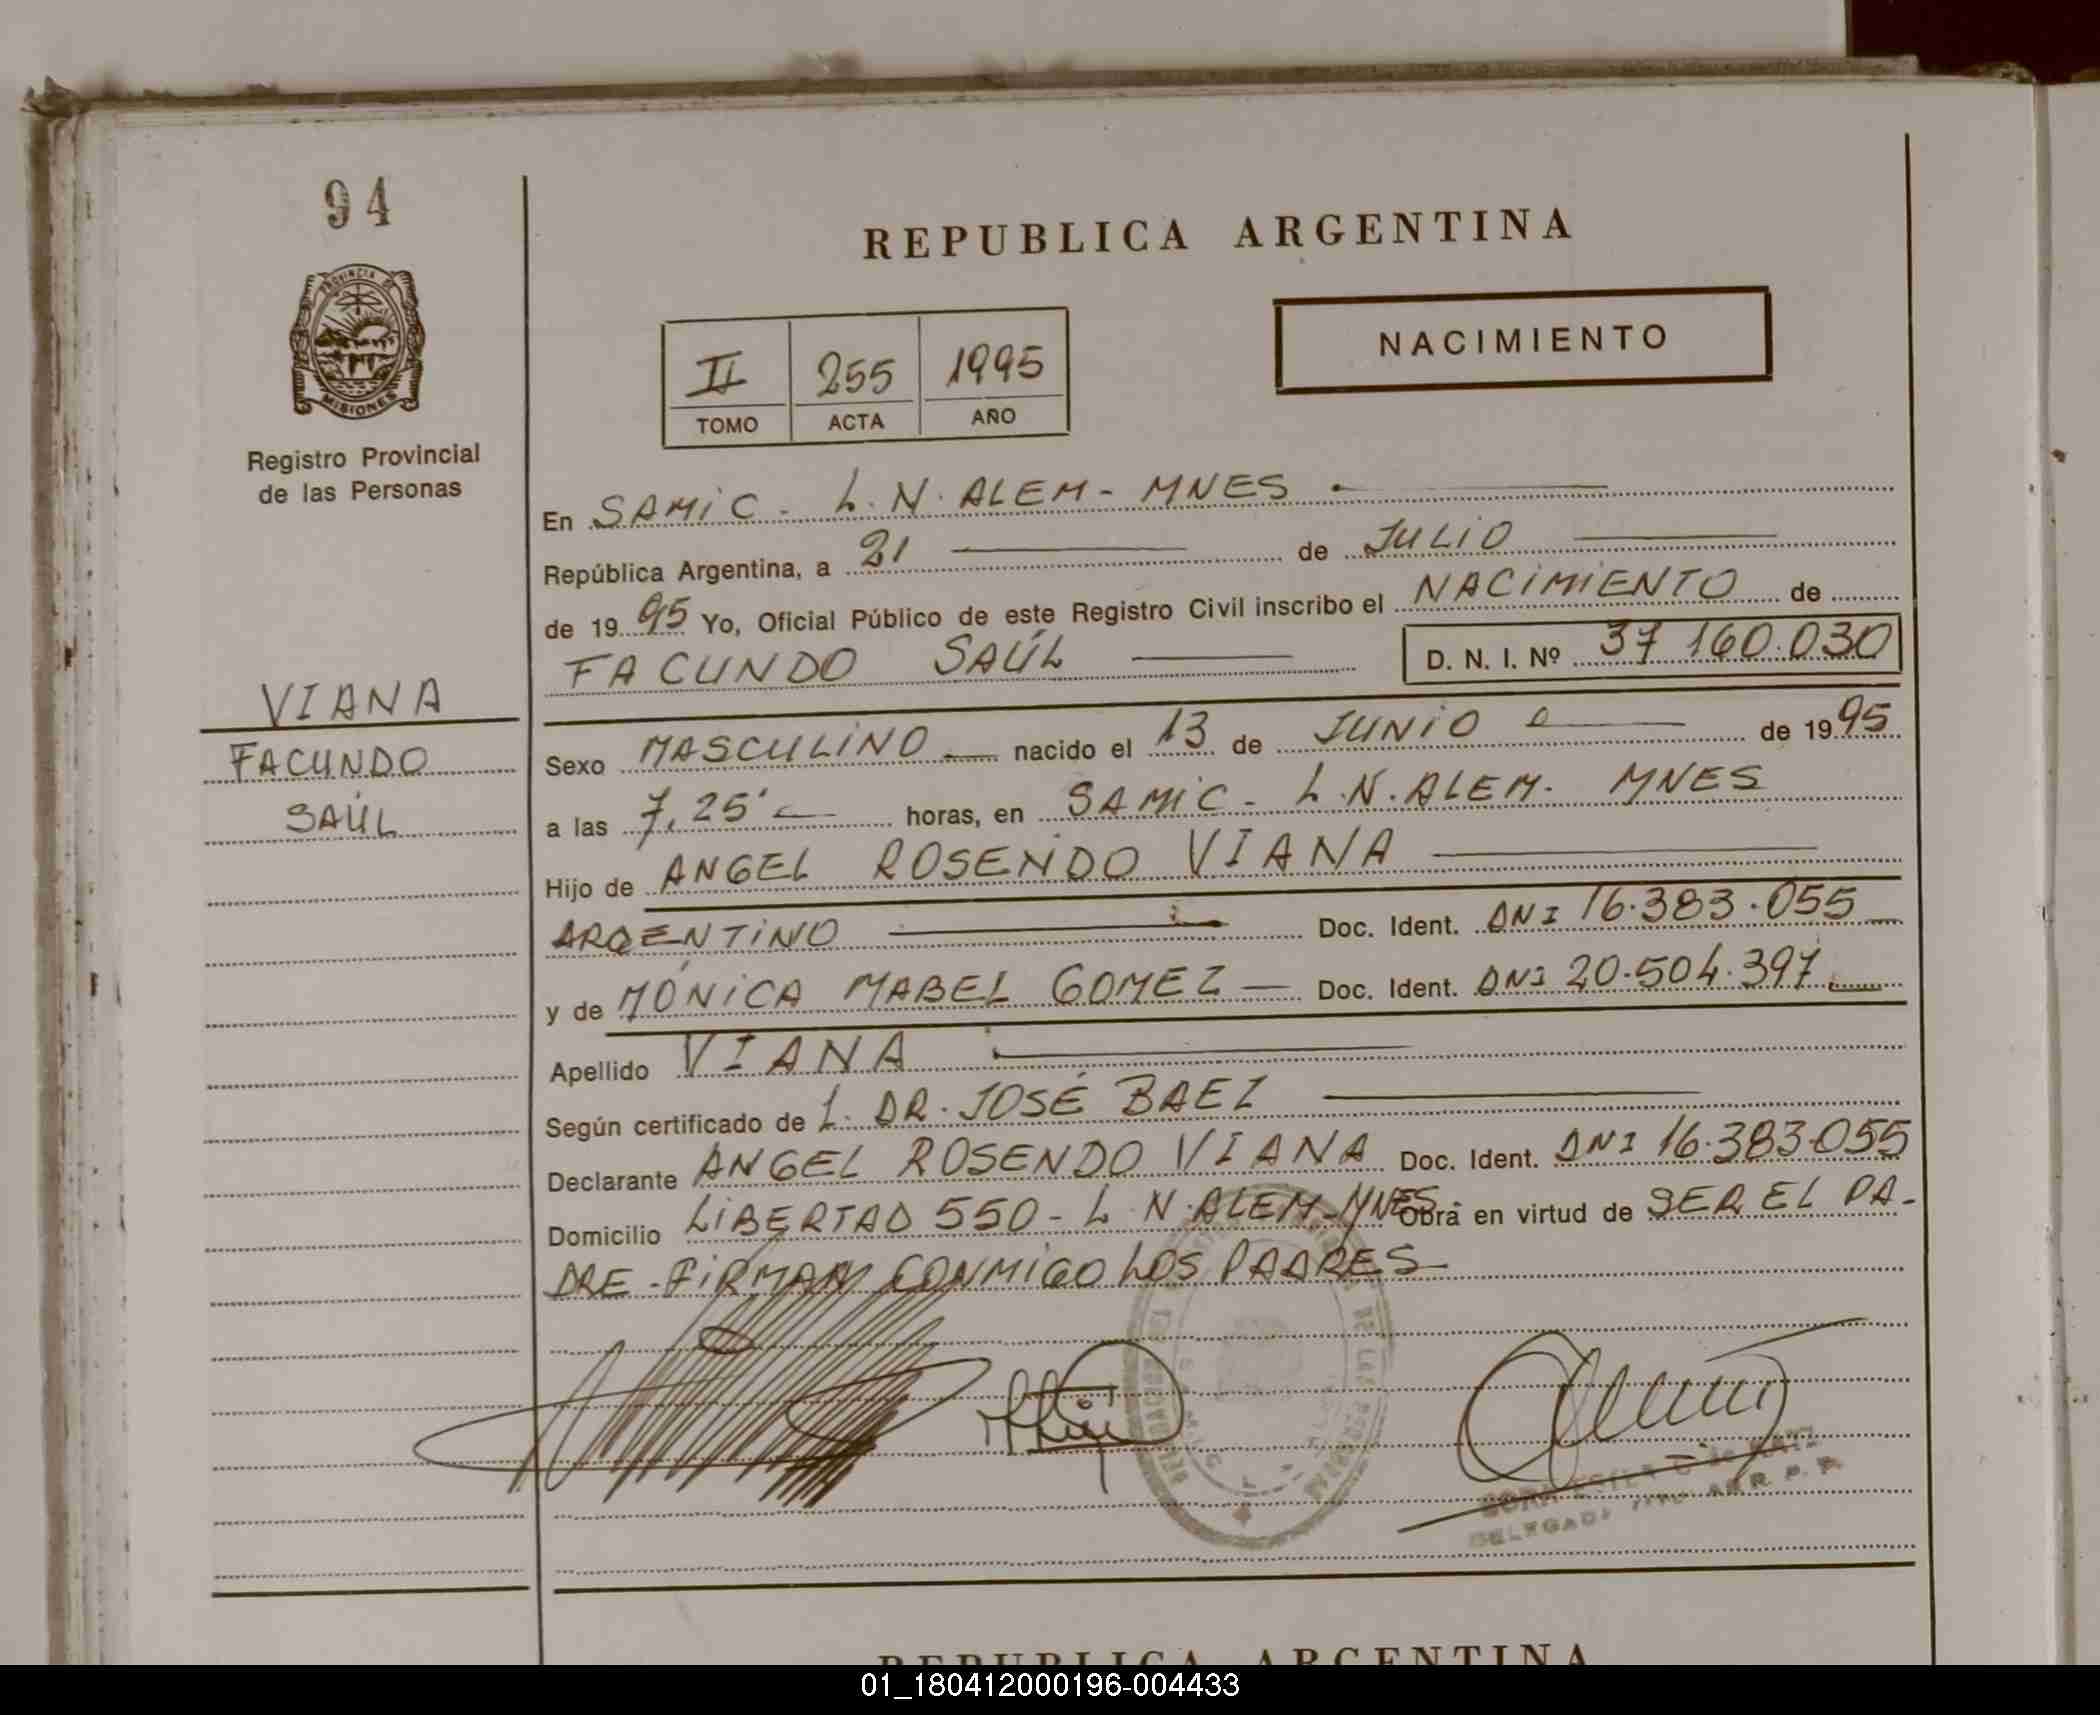 94
REPUBLICA ARGENTINA
PROVINCIA DE
MISIONES
II 255 1995
TOMO ACTA AÑO
NACIMIENTO
Registro Provincial
de las Personas
VIANA
FACUNDO
SAÚL
En SAMIC - L.N. ALEM - MNES
República Argentina, a 21 de JULIO
de 1995 Yo, Oficial Público de este Registro Civil inscribo el NACIMIENTO de
FACUNDO SAÚL D. N. I. Nº 37 160.030
Sexo MASCULINO nacido el 13 de JUNIO de 1995
a las 7,25' horas, en SAMIC - L.N. ALEM. MNES
Hijo de ANGEL ROSENDO VIANA
ARGENTINO Doc. Ident. DNI 16.383.055
y de MÓNICA MABEL GOMEZ Doc. Ident. DNI 20.504.397
Apellido VIANA
Según certificado de L. DR. JOSÉ BAEZ
Declarante ANGEL ROSENDO VIANA Doc. Ident. DNI 16.383.055
Domicilio LIBERTAD 550 - L.N. ALEM - MNES. Obra en virtud de SER EL PA-
DRE - FIRMAN CONMIGO LOS PADRES
REPUBLICA ARGENTINA
01_180412000196-004433